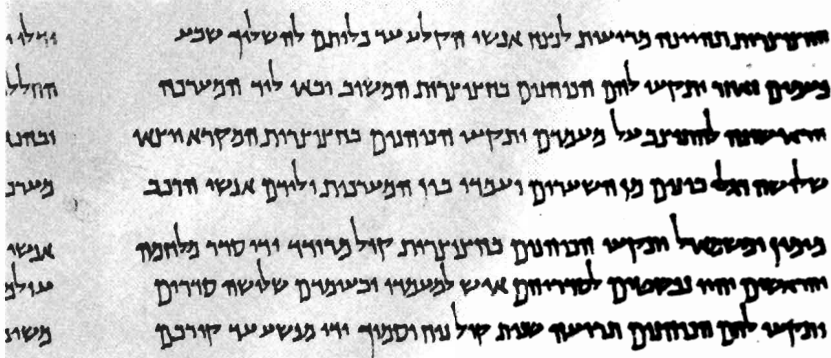 החצוצרות תהיינה מריעות לנצח אנשי הקלע עד כלותם להשליך שבע
פעמים ואחר יתקעו להם הכוהנים בחצוצרות המשוב ובאו ליד המערכה
הראישונה להתיצב על מעמדם ותקעו הכוהנים בחצוצרות המקרא ויצאו
שלושה דגלי בינים מן השערים ועמדו בין המערכות ולידם אנשי הרכב
מימין ומשמאול ותקעו הכוהנים בחצוצרות קול מרודד ידי סדר מלחמה
והראשים יהיו נפשטים לסדריהם איש למעמדו ובעומדם שלושה סדרים
ותקעו להם הכוהנים תרועה שנית קול נוח וסמוך ידי מפשע עד קורבם
יחלו י
החללי
ובהנג
מערכ
אנשי
עולמ
משוח